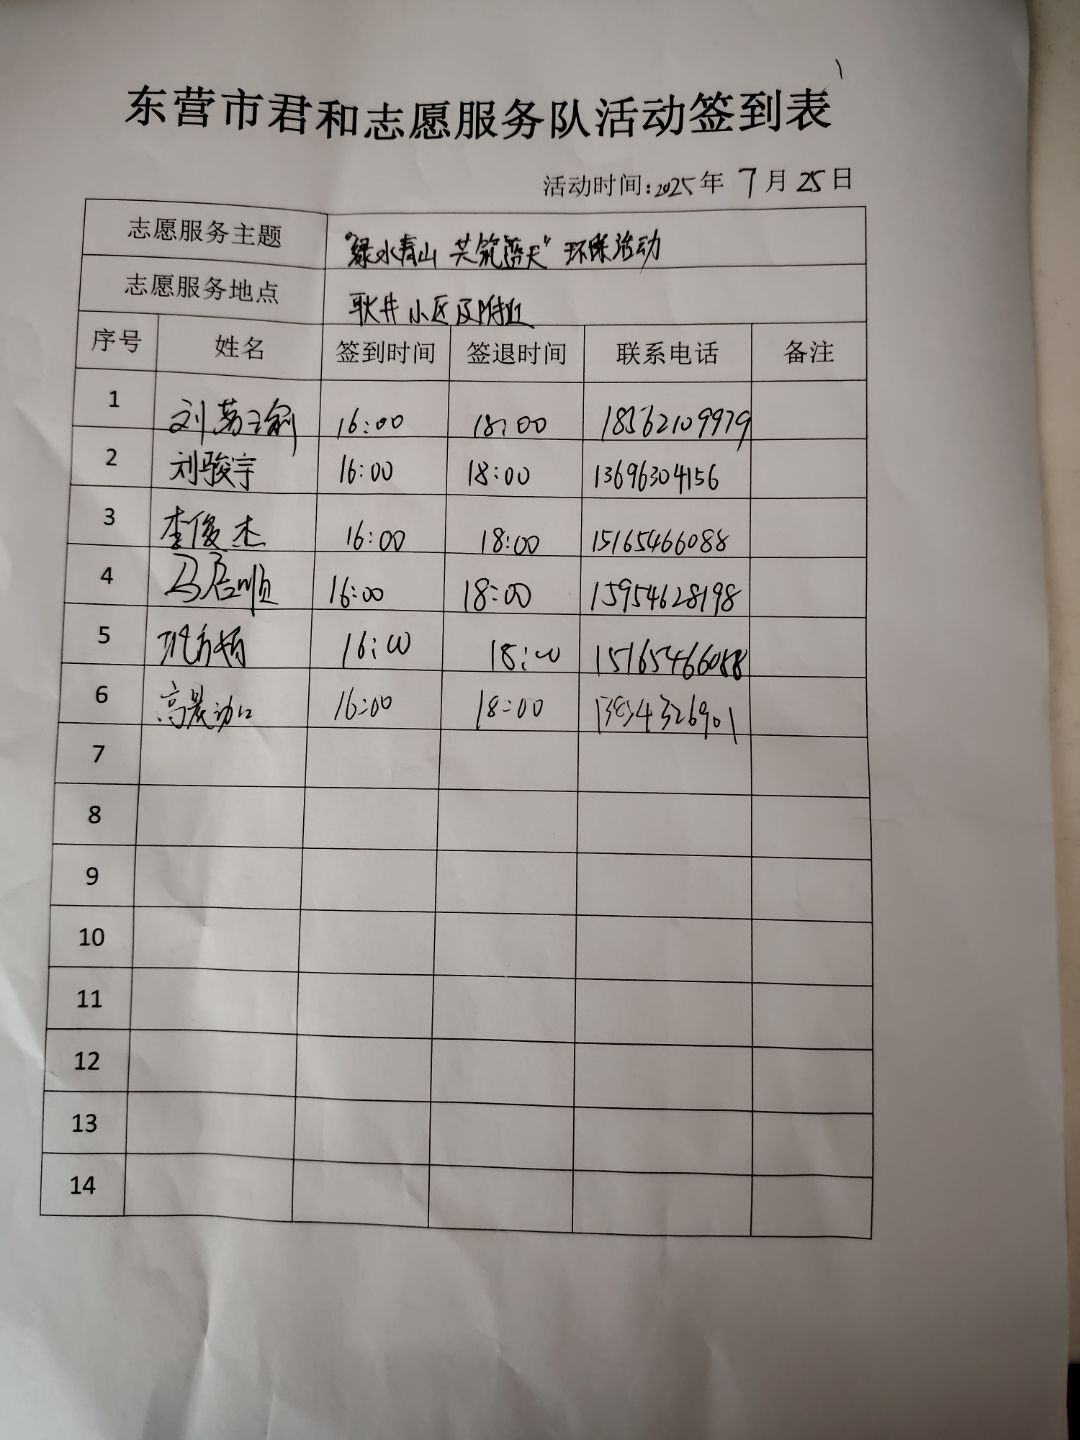 东营市君和志愿服务队活动签到表
活动时间:2025年 7月 25日
志愿服务主题 "绿水青山 共筑蓝天"环保活动
志愿服务地点 耿井小区及附近
序号 姓名 签到时间 签退时间 联系电话 备注
1 刘 16:00 18:00 18562109979
2 刘骏宇 16:00 18:00 13696304156
3 李俊杰 16:00 18:00 15165466088
4 马居顺 16:00 18:00 15954628198
5 16:00 18:00 15165466088
6 高晨 16:00 18:00
7
8
9
10
11
12
13
14